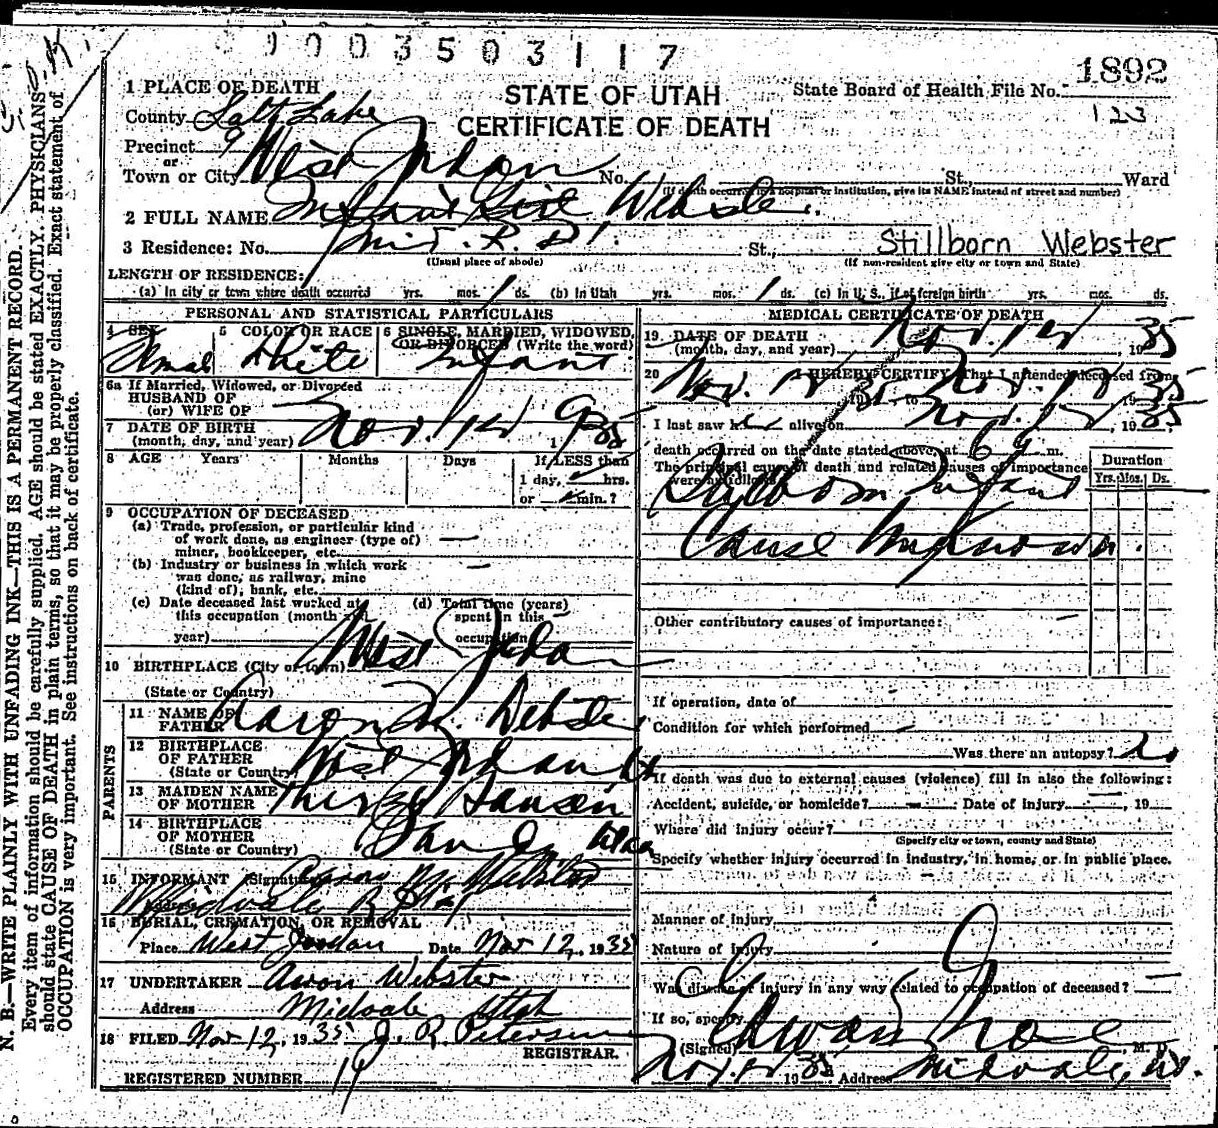 9003503117
1892
123
1 PLACE OF DEATH
STATE OF UTAH
CERTIFICATE OF DEATH
State Board of Health File No.
County Salt Lake
Precinct 9
or
Town or City West Jordan No. St., Ward
(If death occurred in a hospital or institution, give its NAME instead of street and number)
2 FULL NAME Infant Girl Webster.
3 Residence: No. Mid. R. D. 1. St., Stillborn Webster
(Usual place of abode) (If non-resident give city or town and State)
LENGTH OF RESIDENCE:
(a) In city or town where death occurred yrs. mos. 1 ds. (b) In Utah yrs. mos. 1 ds. (c) In U. S., if of foreign birth yrs. mos. ds.
PERSONAL AND STATISTICAL PARTICULARS
4 SEX 5 COLOR OR RACE 6 SINGLE, MARRIED, WIDOWED, OR DIVORCED (Write the word)
White Infant
6a If Married, Widowed, or Divorced
HUSBAND OF
(or) WIFE OF
7 DATE OF BIRTH
(month, day, and year) Nov. 12 1935
8 AGE Years Months Days If LESS than
1 day, hrs.
or min.?
9 OCCUPATION OF DECEASED
(a) Trade, profession, or particular kind
of work done, as engineer (type of)
miner, bookkeeper, etc.
(b) Industry or business in which work
was done, as railway, mine
(kind of), bank, etc.
(c) Date deceased last worked at (d) Total time (years)
this occupation (month and spent in this
year) occupation
10 BIRTHPLACE (City or town) West Jordan
(State or Country)
PARENTS
11 NAME OF
FATHER Aaron M. Webster
12 BIRTHPLACE
OF FATHER West Jordan Ut
(State or Country)
13 MAIDEN NAME
OF MOTHER Hansen
14 BIRTHPLACE
OF MOTHER Utah
(State or Country)
15 INFORMANT (Signature) M. Webster
Midvale R
16 BURIAL, CREMATION, OR REMOVAL
Place West Jordan Date Nov 12, 1935
17 UNDERTAKER Aron Webster
Address Midvale Utah
18 FILED Nov 12, 1935 J. R. Peterson
REGISTRAR.
REGISTERED NUMBER 14
MEDICAL CERTIFICATE OF DEATH
19 DATE OF DEATH
(month, day, and year) Nov. 12, 1935
20 I HEREBY CERTIFY That I attended deceased from
Nov. 12 35, to Nov. 12 1935
I last saw h alive on Nov. 12 1935
death occurred on the date stated above, at 6 m.
The principal cause of death and related causes of importance
were as follows:
Duration
Yrs. Mos. Ds.
Stillborn Infant
Cause Unknown.
Other contributory causes of importance:
If operation, date of
Condition for which performed
Was there an autopsy? No
If death was due to external causes (violence) fill in also the following:
Accident, suicide, or homicide? Date of injury , 19
Where did injury occur?
(Specify city or town, county and State)
Specify whether injury occurred in industry, in home, or in public place.
Manner of injury
Nature of injury
Was disease or injury in any way related to occupation of deceased?
If so, specify
(Signed) M. D.
Nov. 12 1935 Address Midvale, Ut.
N. B.—WRITE PLAINLY WITH UNFADING INK—THIS IS A PERMANENT RECORD.
Every item of information should be carefully supplied. AGE should be stated EXACTLY. PHYSICIANS
should state CAUSE OF DEATH in plain terms, so that it may be properly classified. Exact statement of
OCCUPATION is very important. See instructions on back of certificate.